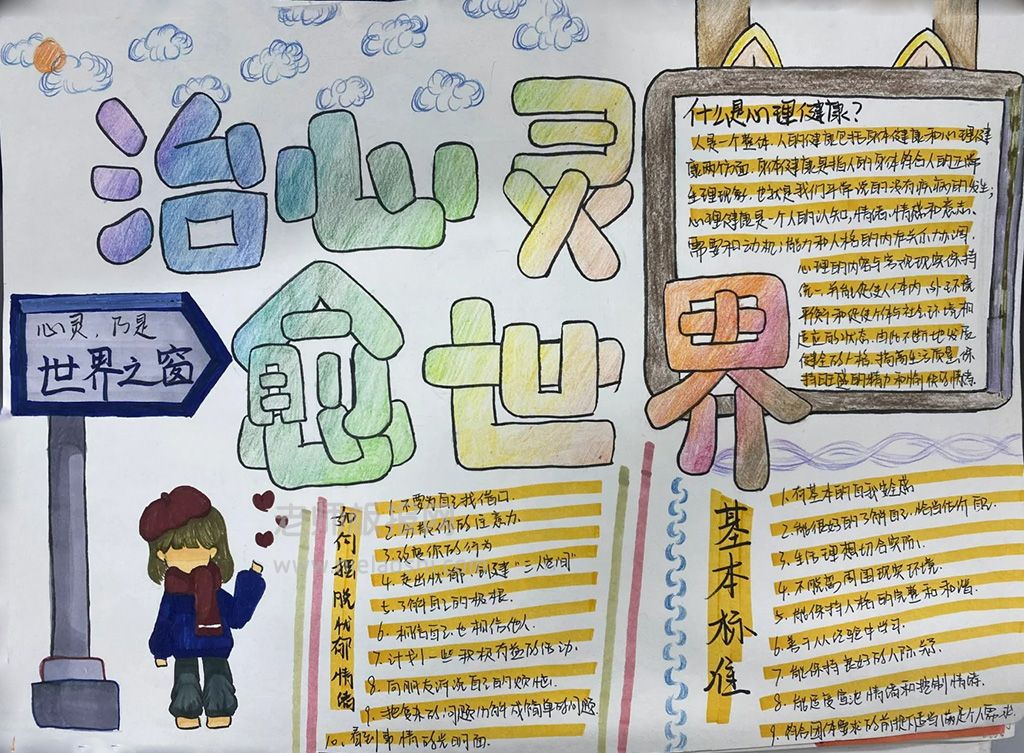 治心灵
愈世界
心灵，乃是
世界之窗
什么是心理健康？
人是一个整体，人的健康包括身体健康和心理健
康两个方面，身体健康是指人的身体符合人的正常
生理现象，也就是我们平常说的没有疾病的发生；
心理健康是一个人的认知，情绪，情感和意志、
需要和动机；能力和人格的内在关系协调，
心理的内容与客观现实保持
统一，并能促使人体内、外在环境
平衡和促使个体与社会环境相
适应的状态，由此不断地发展
健全的人格，提高生活质量，保
持旺盛的精力和愉快的情绪
如何摆脱忧郁情绪
1.不要为自己找借口.
2.分散你的注意力.
3.改变你的行为
4.走出忧郁，创建“三人空间”
5.了解自己的极根.
6.相信自己也相信他人.
7.计划一些积极有益的活动.
8.向朋友诉说自己的烦恼.
9.把复杂的问题分解成简单的问题.
10.看到事情的光明面.
基本标准
1.有基本的自我安全感
2.能很好的了解自己，恰当估价自己.
3.生活理想切合实际.
4.不脱离周围现实环境.
5.能保持人格的完整和和谐.
6.善于从经验中学习.
7.能保持良好的人际关系.
8.能适度宣泄情绪和控制情绪.
9.符合团体要求的前提下适当满足个人需求